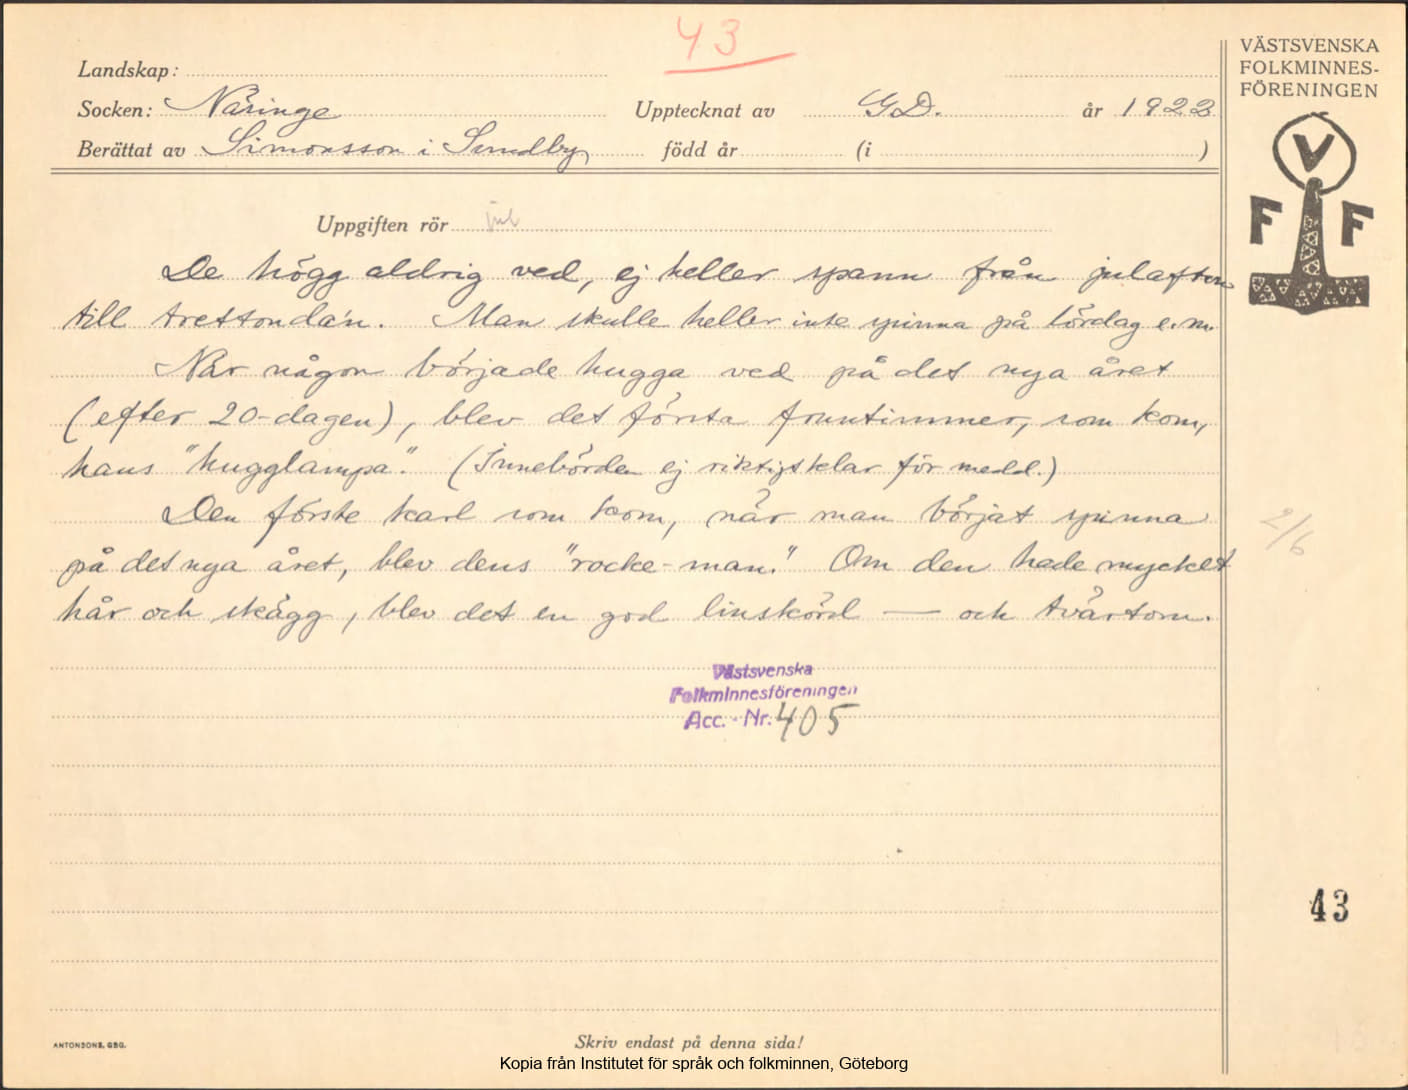 43
VÄSTSVENSKA
FOLKMINNES-
FÖRENINGEN
V
F F
Landskap:
Socken: Näringe Upptecknat av G.D. år 1922
Berättat av Simonsson i Sundby född år (i )
Uppgiften rör jul
De högg aldrig ved, ej heller spann från julafton
till trettonda'n. Man skulle heller inte spinna på lördag e.m.
När någon började hugga ved på det nya året
(efter 20-dagen), blev det första fruntimmer, som kom,
hans "hugglampa". (Innebörden ej riktigt klar för medd.)
Den förste karl som kom, när man börjat spinna
på det nya året, blev dens "rocke-man." Om den hade mycket
hår och skägg, blev det en god linskörd — och tvärtom.
2/6
Västsvenska
Folkminnesföreningen
Acc. - Nr. 405
43
ANTONSONS, GBG.
Skriv endast på denna sida!
Kopia från Institutet för språk och folkminnen, Göteborg